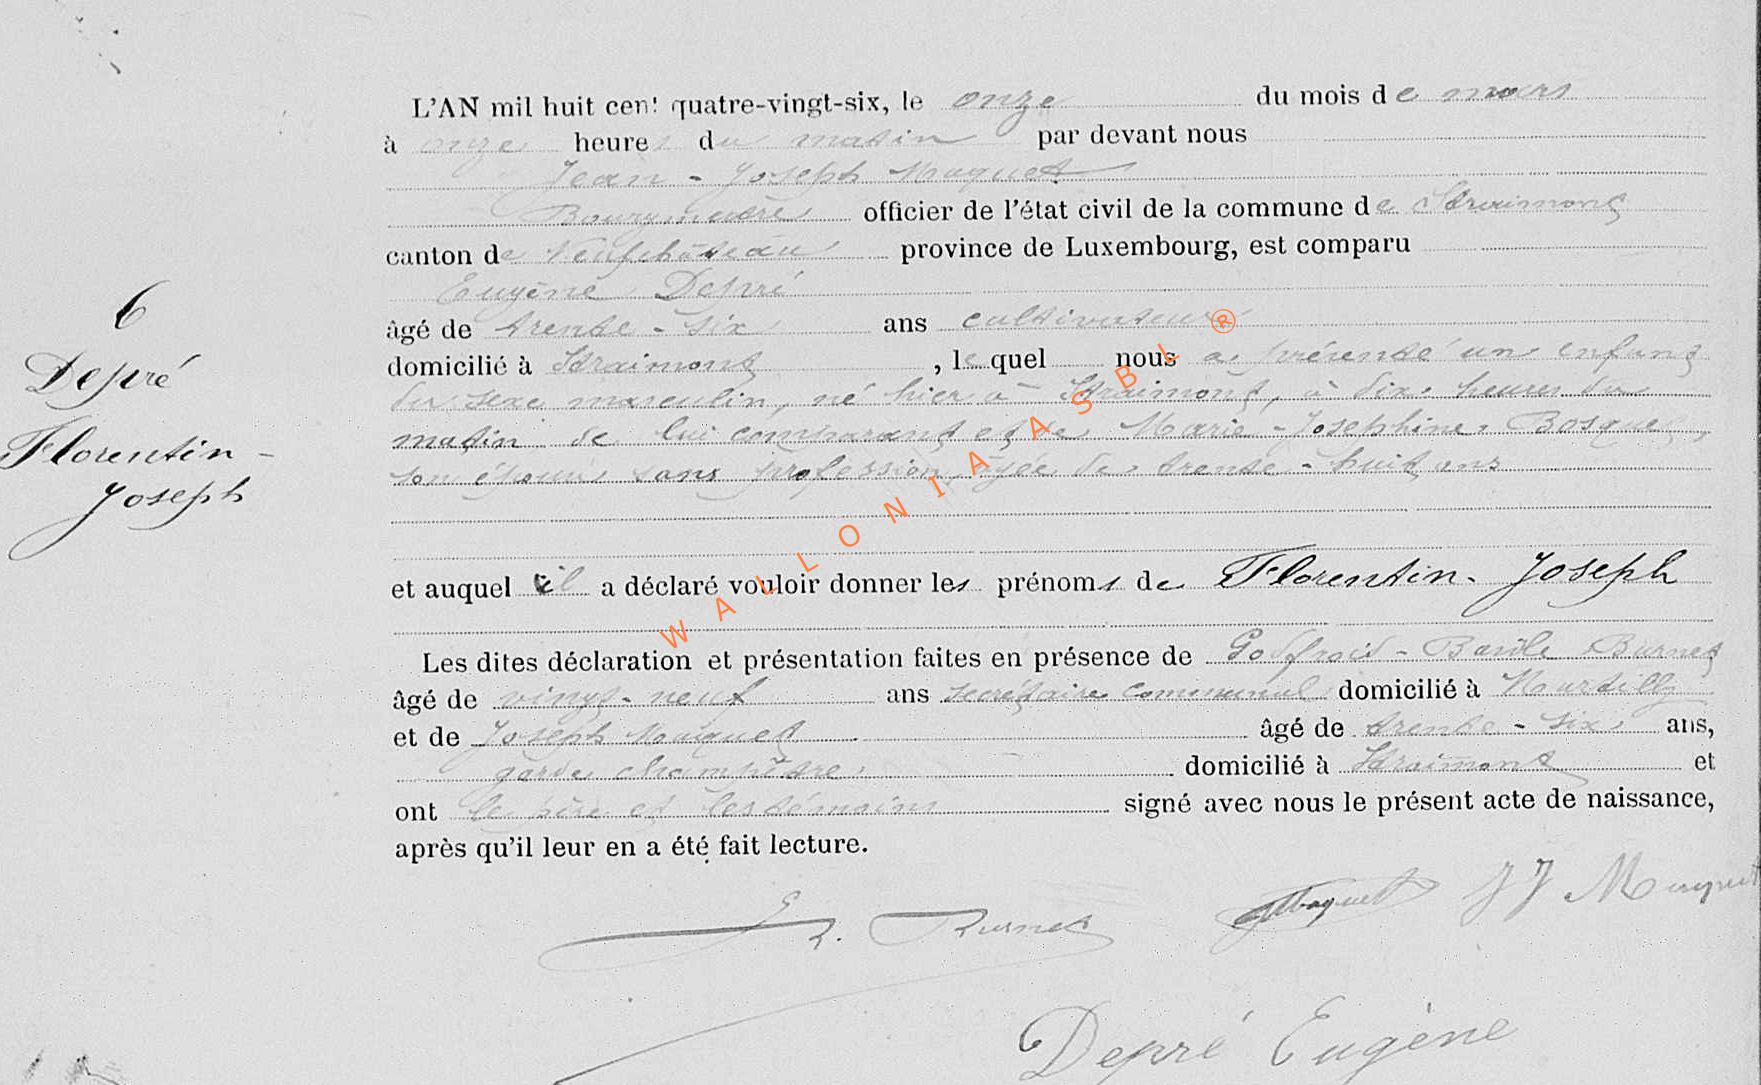 L'AN mil huit cent quatre-vingt-six, le onze du mois de mars
à onze heures du matin par devant nous
Jean - Joseph Maquet
Bourgmestre officier de l'état civil de la commune de Straimont
canton de Neufchâteau province de Luxembourg, est comparu
Eugène Depré
âgé de trente - six ans cultivateur
domicilié à Straimont, lequel nous a présenté un enfant
du sexe masculin, né hier à Straimont, à dix heures du
matin de lui comparant et de Marie - Joséphine Bosquet,
son épouse sans profession, âgée de trente - huit ans
6
Depré
Florentin -
Joseph
et auquel il a déclaré vouloir donner les prénoms de Florentin - Joseph
Les dites déclaration et présentation faites en présence de Godfroid - Basile Burnet
âgé de vingt - neuf ans secrétaire communal domicilié à Martilly
et de Joseph Maquet âgé de trente - six ans,
garde champêtre domicilié à Straimont et
ont le père et les témoins signé avec nous le présent acte de naissance,
après qu'il leur en a été fait lecture.
Burnet Maquet J J Maquet
Depré Eugène
WALLONIA ASBL ®